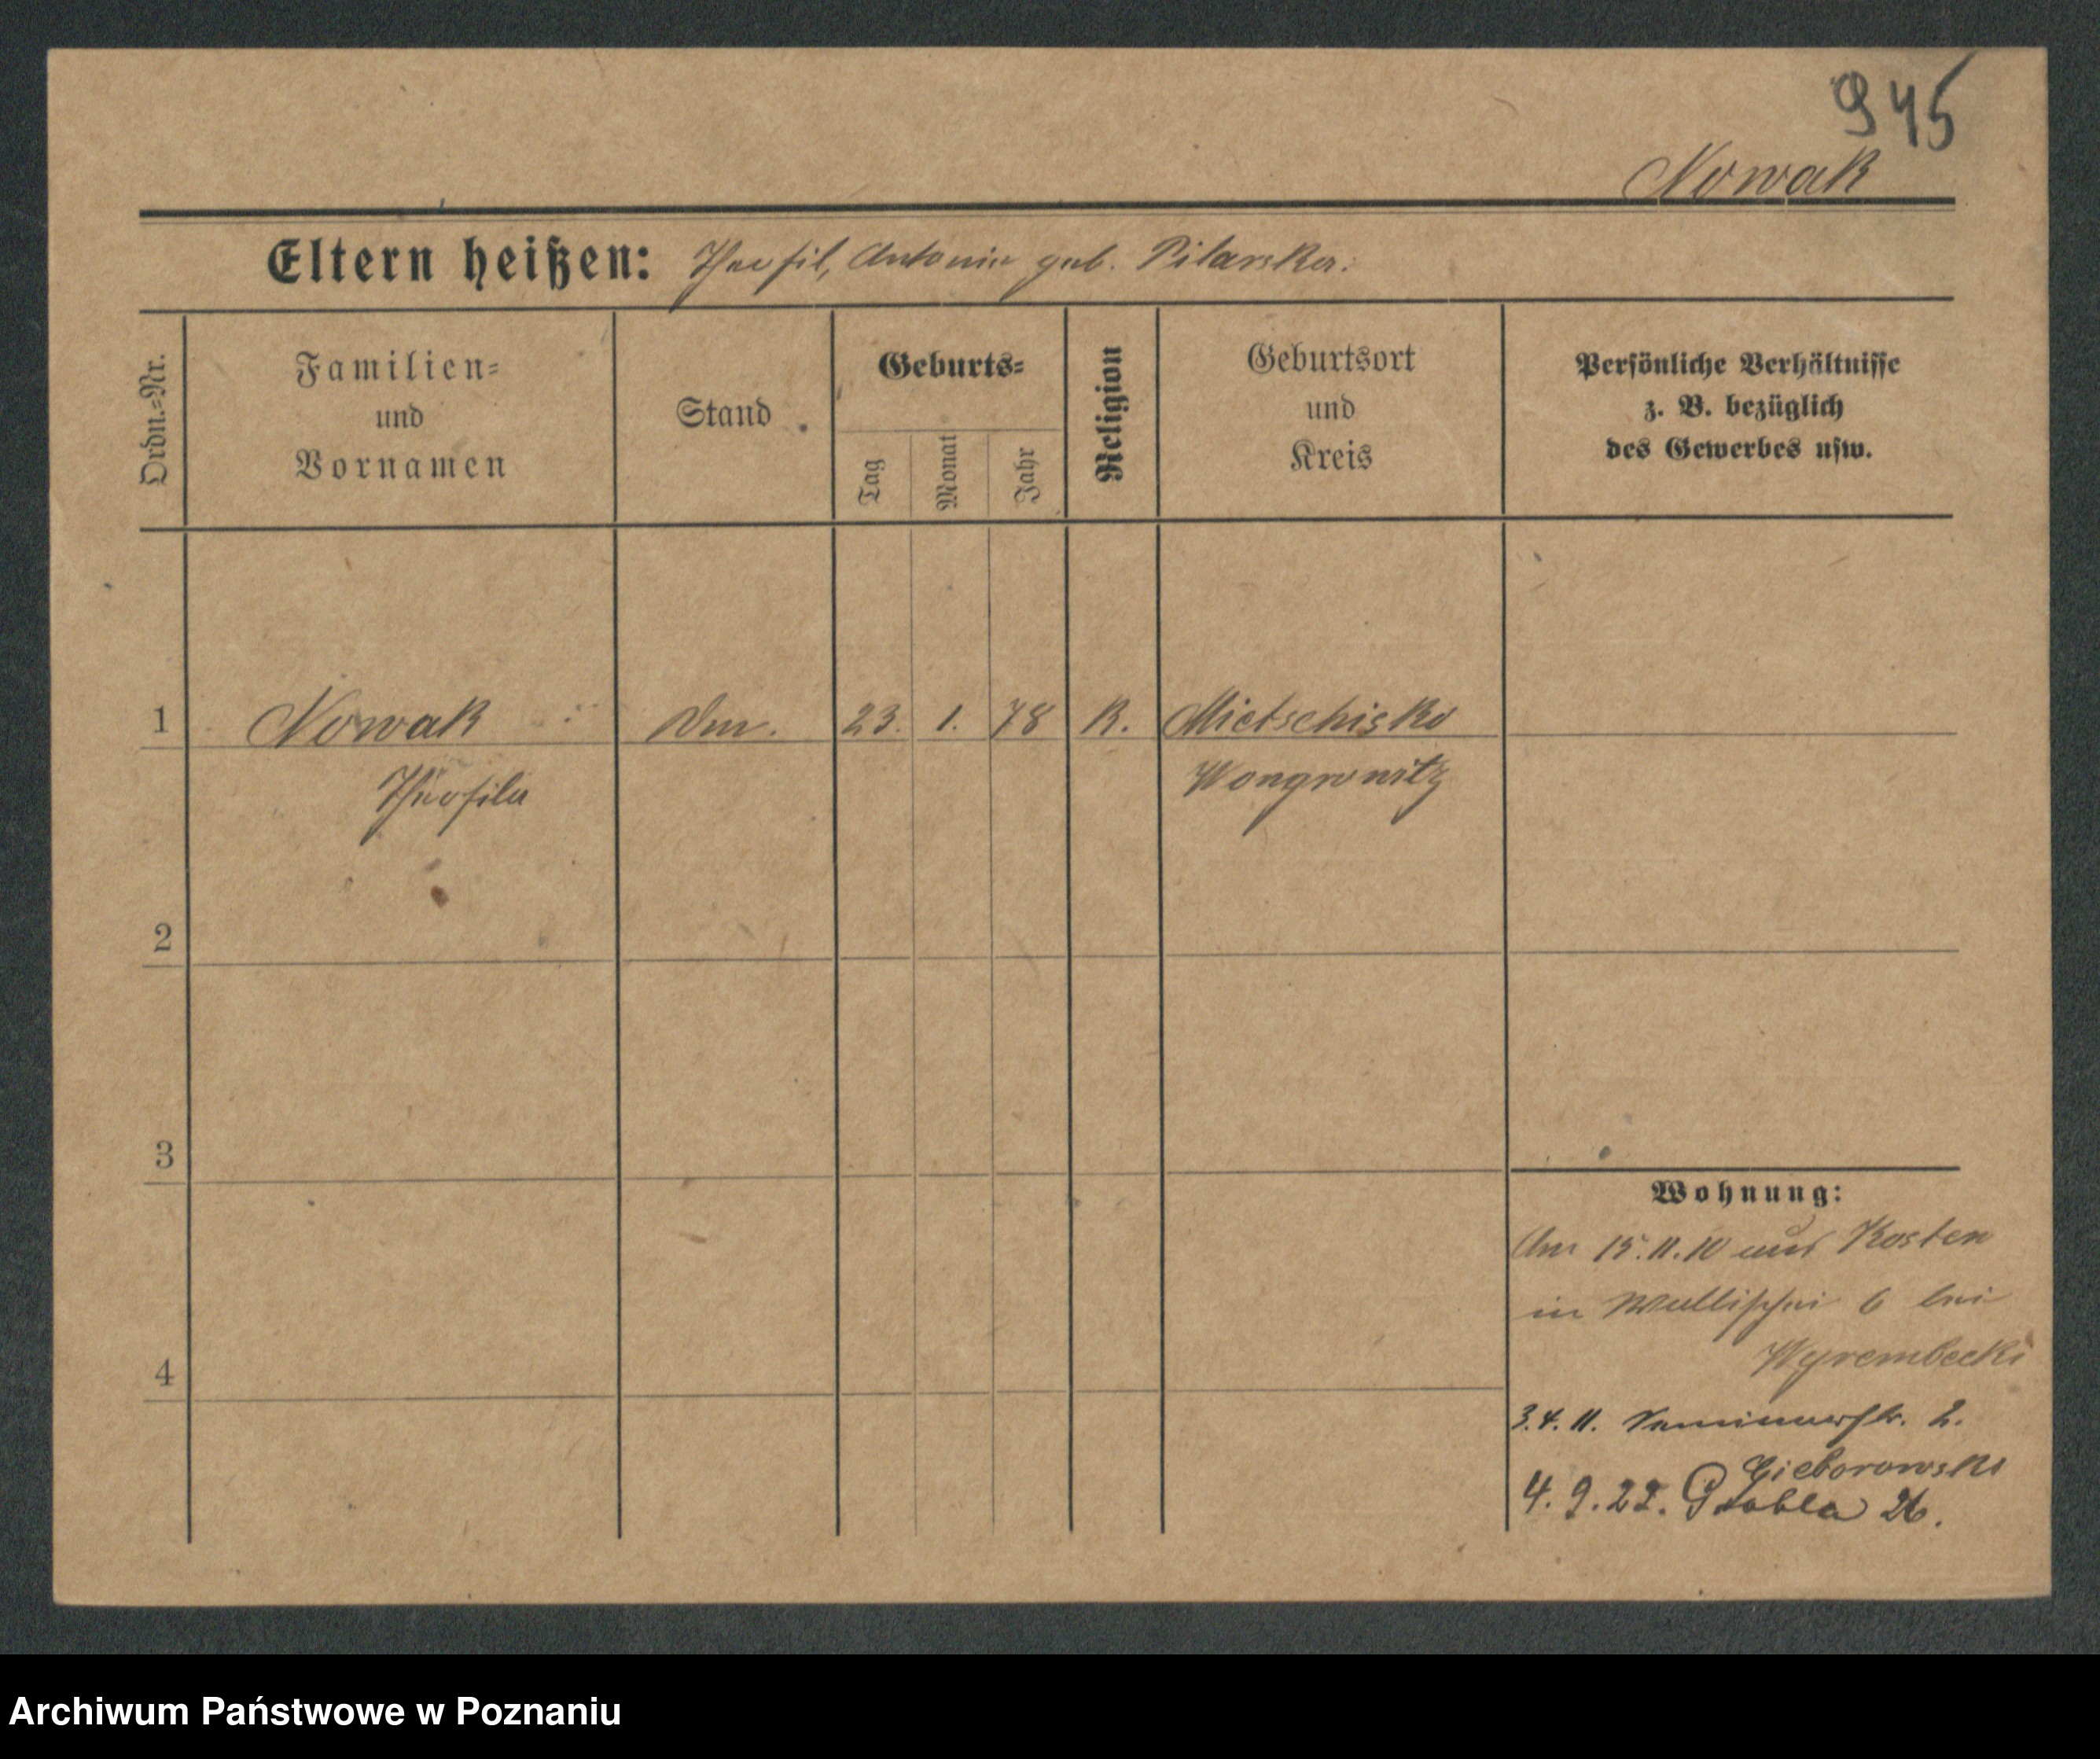 945
Nowak
Eltern heißen: Theofil, Antonie geb. Pilarska.
Ordn.=Nr.
Familien=
und
Vornamen
Stand
Geburts=
Tag
Monat
Jahr
Religion
Geburtsort
und
Kreis
Persönliche Verhältnisse
z. B. bezüglich
des Gewerbes usw.
1 Nowak 23. 1. 78 K. Mietschisko
Theofila Wongrowitz
2
3
4
Wohnung:
Am 15.11.10 aus Kosten
in Wallischei 6 bei
Wyrembecki
3.4.11. Seminarstr. 2.
Cieborowski
4.9.22. Grobla 26.
Archiwum Państwowe w Poznaniu